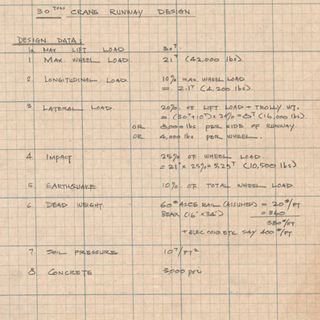 30 TON CRANE RUNWAY DESIGN
DESIGN DATA:
MAX LIFT LOAD 30T
1 MAX. WHEEL LOAD 21T (42,000 lbs)
2 LONGITUDINAL LOAD 10% MAX WHEEL LOAD
= 2.1T (4,200 lbs).
3 LATERAL LOAD 20% OF LIFT LOAD + TROLLY WT.
= (30T+10T) × 20% = 8T (16,000 lbs)
OR 8,000 lbs PER SIDE OF RUNWAY
OR 4,000 lbs PER WHEEL.
4 IMPACT 25% OF WHEEL LOAD
= 21T × 25% = 5.25T (10,500 lbs)
5 EARTHQUAKE 10% OF TOTAL WHEEL LOAD.
6 DEAD WEIGHT 60# ASCE RAIL (ASSUMED) = 20#/FT
BEAM = 360
380#/FT
+ ELEC COND ETC. SAY 400#/FT
7 SOIL PRESSURE 10T/FT²
8 CONCRETE 3,000 psi